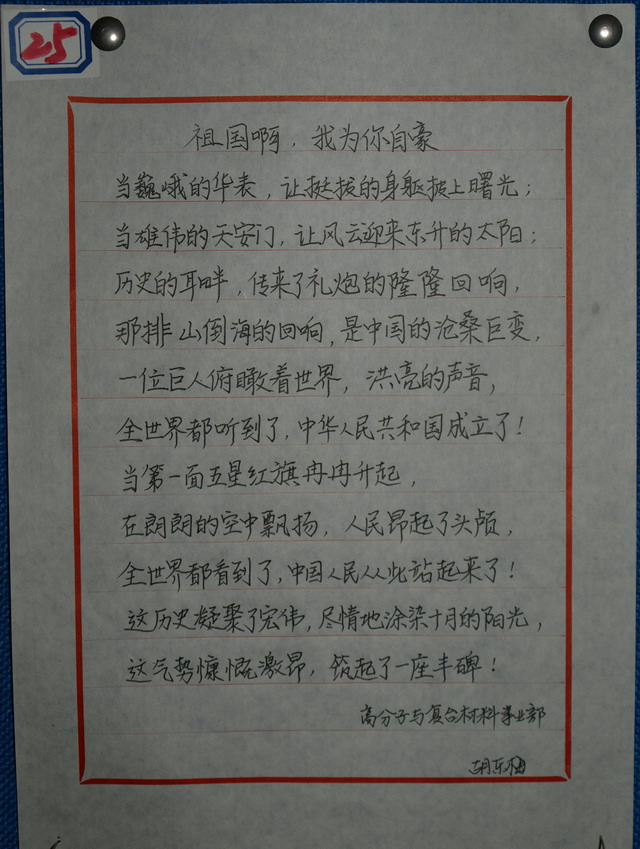 25
祖国啊，我为你自豪
当巍峨的华表，让挺拔的身躯披上曙光；
当雄伟的天安门，让风云迎来东升的太阳；
历史的耳畔，传来了礼炮的隆隆回响，
那排山倒海的回响，是中国的沧桑巨变，
一位巨人俯瞰着世界，洪亮的声音，
全世界都听到了，中华人民共和国成立了！
当第一面五星红旗冉冉升起，
在朗朗的空中飘扬，人民昂起了头颅，
全世界都看到了，中国人民从此站起来了！
这历史凝聚了宏伟，尽情地涂染十月的阳光，
这气势慷慨激昂，筑起了一座丰碑！
高分子与复合材料事业部
胡东